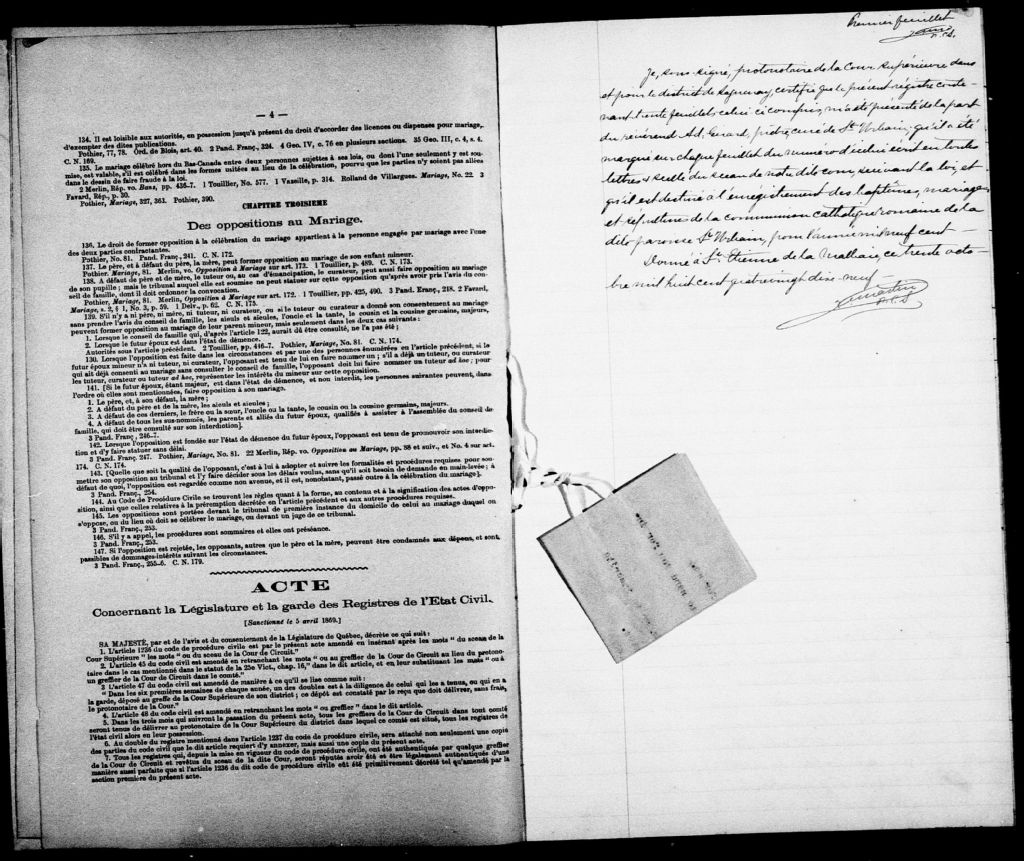 — 4 —
134. Il est loisible aux autorités, en possession jusqu'à présent du droit d'accorder des licences ou dispenses pour mariage,
d'exempter des dites publications.
Pothier, 77, 78. Ord. de Blois, art. 40. 2 Pand. Franç., 324. 4 Geo. IV, c. 76 en plusieurs sections. 35 Geo. III, c. 4, s. 4.
C. N. 169.
135. Le mariage célébré hors du Bas-Canada entre deux personnes sujettes à ses lois, ou dont l'une seulement y est sou-
mise, est valable, s'il est célébré dans les formes usitées au lieu de la célébration, pourvu que les parties n'y soient pas allées
dans le dessin de faire fraude à la loi.
2 Merlin, Rép. vo. Bans, pp. 436-7. 1 Touillier, No. 577. 1 Vazeille, p. 314. Rolland de Villargues. Mariage, No. 22. 3
Favard, Rép., p. 30.
Pothier, Mariage, 327, 363. Pothier, 390.
CHAPITRE TROISIEME
Des oppositions au Mariage.
136. Le droit de former opposition à la célébration du mariage appartient à la personne engagée par mariage avec l'une
des deux parties contractantes.
Pothier, No. 81. Pand. Franç., 241. C. N. 172.
137. Le père, et à défaut du père, la mère, peut former opposition au mariage de son enfant mineur.
Pothier. Mariage, 81. Merlin, vo. Opposition à Mariage sur art. 172. 1 Touillier, p. 489. C. N. 173.
138. A défaut de père et de mère, le tuteur ou, au cas d'émancipation, le curateur, peut aussi faire opposition au mariage
de son pupille ; mais le tribunal auquel elle est soumise ne peut statuer sur cette opposition qu'après avoir pris l'avis du con-
seil de famille, dont il doit ordonner la convocation.
Pothier, Mariage, 81. Merlin, Opposition à Mariage sur art. 172. 1 Touillier, pp. 425, 490. 3 Pand. Franç., 218. 2 Favard,
Mariage, s. 2, § 1, No. 3, p. 59. 1 Delv., p. 62. C. N. 175.
139. S'il n'y a ni père, ni mère, ni tuteur, ni curateur, ou si le tuteur ou curateur a donné son consentement au mariage
sans prendre l'avis du conseil de famille, les aïeuls et aïeules, l'oncle et la tante, le cousin et la cousine germains, majeurs,
peuvent former opposition au mariage de leur parent mineur, mais seulement dans les deux cas suivants :
1. Lorsque le conseil de famille qui, d'après l'article 122, aurait dû être consulté, ne l'a pas été ;
2. Lorsque le futur époux est dans l'état de démence.
Autorités sous l'article précédent. 2 Touillier, pp. 416-7. Pothier, Mariage, No. 81. C. N. 174.
130. Lorsque l'opposition est faite dans les circonstances et par une des personnes énumérées en l'article précédent, si le
futur époux mineur n'a ni tuteur, ni curateur, l'opposant est tenu de lui en faire nommer un ; s'il a déjà un tuteur, ou curateur
qui ait déjà consenti au mariage sans consulter le conseil de famille, l'opposant doit lui faire nommer un tuteur ad hoc ; pour
les tuteur, curateur ou tuteur ad hoc, représenter les intérêts du mineur sur cette opposition.
141. [Si le futur époux, étant majeur, est dans l'état de démence, et non interdit, les personnes suivantes peuvent, dans
l'ordre où elles sont mentionnées, faire opposition à son mariage.
1. Le père, et, à son défaut, la mère ;
2. A défaut du père et de la mère, les aïeuls et aïeules ;
3. A défaut de ces derniers, le frère ou la sœur, l'oncle ou la tante, le cousin ou la cousine germains, majeurs.
4. A défaut de tous les sus-nommés, les parents et alliés du futur époux, qualifiés à assister à l'assemblée du conseil de
famille, qui doit être consulté sur son interdiction].
3 Pand. Franç., 246-7.
142. Lorsque l'opposition est fondée sur l'état de démence du futur époux, l'opposant est tenu de promouvoir son interdic-
tion et d'y faire statuer sans délai.
3 Pand. Franç. 247. Pothier, Mariage, No. 81. 22 Merlin, Rép. vo. Opposition au Mariage, pp. 88 et suiv., et No. 4 sur art.
174. C. N. 174.
143. [Quelle que soit la qualité de l'opposant, c'est à lui à adopter et suivre les formalités et procédures requises pour sou-
mettre son opposition au tribunal et l'y faire décider sous les délais voulus, sans qu'il soit besoin de demande en main-levée ; à
défaut de quoi, l'opposition est regardée comme non avenue, et il est, nonobstant, passé outre à la célébration du mariage].
3 Pand. Franç., 254.
144. Au Code de Procédure Civile se trouvent les règles quant à la forme, au contenu et à la signification des actes d'oppo-
sition, ainsi que celles relatives à la préremption décrétée en l'article précédent et aux autres procédures requises.
145. Les oppositions sont portées devant le tribunal de première instance du domicile de celui au mariage duquel on
s'oppose, ou du lieu où doit se célébrer le mariage, ou devant un juge de ce tribunal.
3 Pand. Franç., 253.
146. S'il y a appel, les procédures sont sommaires et elles ont préséance.
3 Pand. Franç., 253.
147. Si l'opposition est rejetée, les opposants, autres que le père et la mère, peuvent être condamnés aux dépens, et sont
passibles de dommages-intérêts suivant les circonstances.
3 Pand. Franç., 255-6. C. N. 179.
ACTE
Concernant la Législature et la garde des Registres de l'Etat Civil.
[Sanctionné le 5 avril 1869.]
SA MAJESTÉ, par et de l'avis et du consentement de la Législature de Québec, décrète ce qui suit :
1. L'article 1236 du code de procédure civile est par le présent acte amendé en insérant après les mots " du sceau de la
Cour Supérieure " les mots " ou du sceau de la Cour de Circuit."
2. L'article 45 du code civil est amendé en retranchant les mots " ou au greffier de la Cour de Circuit au lieu du protono-
taire dans le cas mentionné dans le statut de la 25e Vict., chap. 16," dans le dit article, et en leur substituant les mots " ou à
un greffier de la Cour de Circuit dans le comté."
3 L'article 47 du code civil est amendé de manière à ce qu'il se lise comme suit :
" Dans les six premières semaines de chaque année, un des doubles est à la diligence de celui qui les a tenus, ou qui en a
la garde, déposé au greffe de la Cour Supérieure de son district ; ce dépôt est constaté par le reçu que doit délivrer, sans frais,
le protonotaire de la Cour."
4. L'article 48 du code civil est amendé en retranchant les mots " ou greffier " dans le dit article.
5. Dans les trois mois qui suivront la passation du présent acte, tous les greffiers de la Cour de Circuit dans tout comté
seront tenus de délivrer au protonotaire de la Cour Supérieure du district dans lequel ce comté est situé, tous les registres de
l'état civil alors en leur possession.
6. Au double du registre mentionné dans l'article 1237 du code de procédure civile, sera attaché non seulement une copie
des parties du code civil que le dit article requiert d'y annexer, mais aussi une copie du présent acte.
7. Tous les registres qui, depuis la mise en vigueur du code de procédure civile, ont été authentiqués par quelque greffier
de la Cour de Circuit et revêtus du sceau de la dite Cour, seront réputés avoir été et être légalement authentiqués d'une
manière aussi parfaite que si l'article 1236 du dit code de procédure civile eût été primitivement décrété tel qu'amendé par la
section première du présent acte.
Premier feuillet
P.C.S.
Je, sous-signé, protonotaire de la Cour Supérieure dans
et pour le district de Saguenay, certifie que le présent régistre conte-
nant trente feuillets celui ci compris, m'a été présenté de la part
du révérend Ad. Girard, ptre, curé de St. Urbain, qu'il a été
marqué sur chaque feuillet du numéro d'icelui écrit en toutes
lettres & scellé du sceau de notre dite cour, suivant la loi, et
qu'il est destiné à l'enrégistrement des baptêmes, mariages
et sépultures de la communion catholique romaine de la
dite paroisse St. Urbain, pour l'année mil neuf cent
Donné à St. Etienne de la Malbaie, ce trente octo-
bre mil huit cent quatre vingt dix neuf.
P.C.S